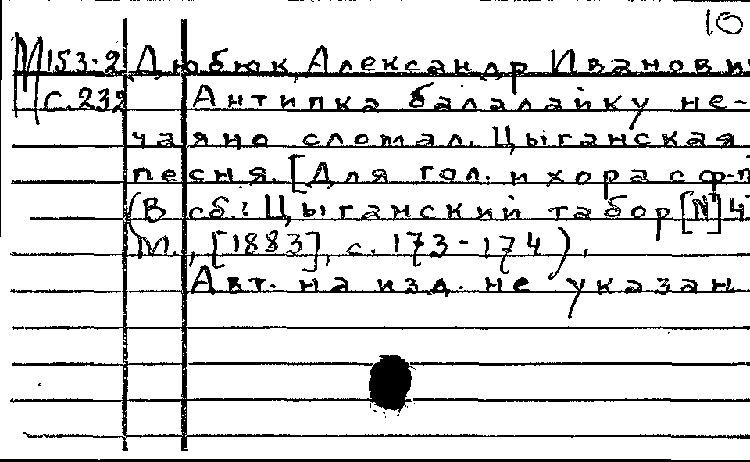 10
М 153-2 Дюбюк, Александр Иванови
с. 232 Антипка балалайку не-
чаяно сломал. Цыганская
песня. [Для гол. и хора с ф-п
(В сб.: Цыганский табор [№] 4
М., [1883], с. 173-174).
Авт. на изд. не указан